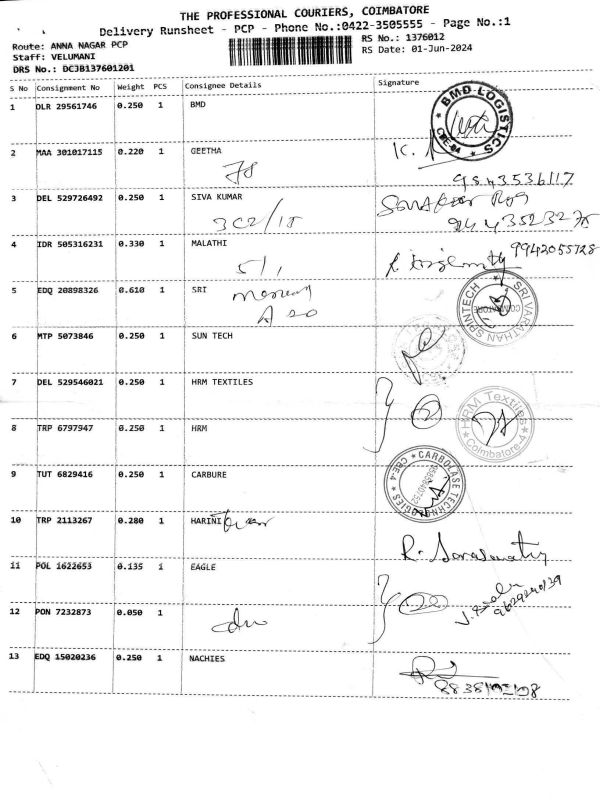 THE PROFESSIONAL COURIERS, COIMBATORE
Delivery Runsheet - PCP - Phone No.:0422-3505555 - Page No.:1
Route: ANNA NAGAR PCP
RS No.: 1376012
Staff: VELUMANI
RS Date: 01-Jun-2024
DRS No.: DCJB137601201
S No Consignment No Weight PCS Consignee Details Signature
1 DLR 29561746 0.250 1 BMD
BMD LOGISTICS CBE-04
2 MAA 301017115 0.220 1 GEETHA
78
K.
9543536117
3 DEL 529726492 0.250 1 SIVA KUMAR
3C2/18
4 IDR 505316231 0.330 1 MALATHI
5/1
9942055728
5 EDQ 20898326 0.610 1 SRI
A 20
SRI VARATHAN SPINTECH COIMBATORE
6 MTP 5073846 0.250 1 SUN TECH
7 DEL 529546021 0.250 1 HRM TEXTILES
HRM Textiles Coimbatore-4
8 TRP 6797947 0.250 1 HRM
9 TUT 6829416 0.250 1 CARBURE
CARBOLASE TECHNOLOGIES CBE-4
10 TRP 2113267 0.280 1 HARINI
R. Saraswathy
11 POL 1622653 0.135 1 EAGLE
12 PON 7232873 0.050 1
13 EDQ 15020236 0.250 1 NACHIES